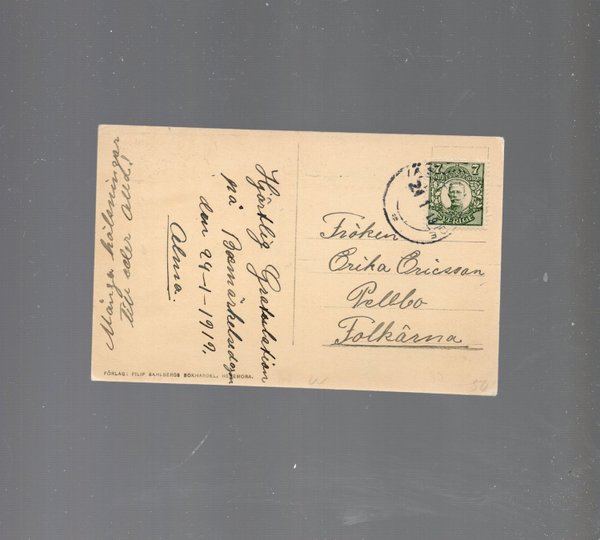 Många hälsningar
till eder alla!
Hjärtlig Gratulation
på Bemärkelsedagen
den 24-1-1919.
Alma.
FÖRLAG: FILIP SAHLBERGS BOKHANDEL, HEDEMORA.
7 7
SVERIGE
24 1
Fröken
Erika Ericsson
Pellbo
Folkärna
50